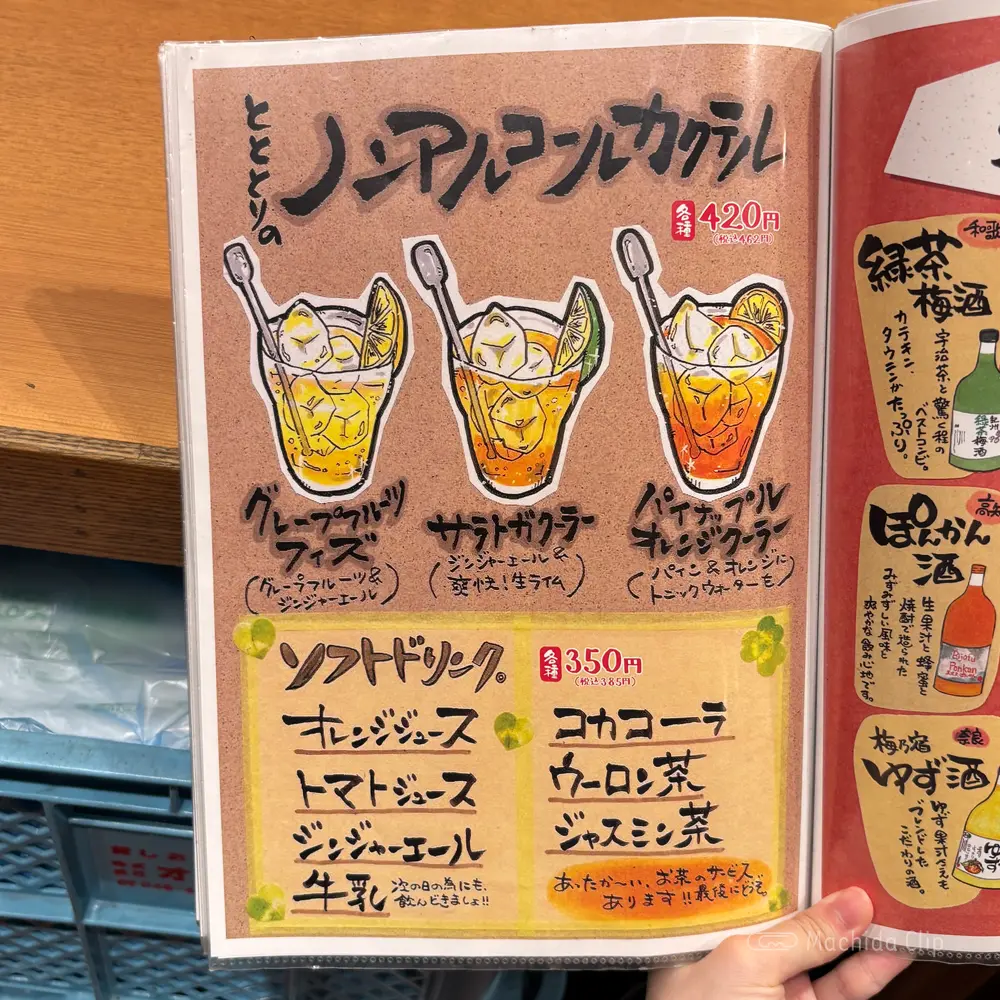 とととりの
ノンアルコールカクテル
各種 420円
(税込462円)
グレープフルーツ
フィズ
(グレープフルーツ&
ジンジャーエール)
サラトガクーラー
(ジンジャーエール&
爽快!生ライム)
パイナップル
オレンジクーラー
(パイン&オレンジに
トニックウォーターも)
ソフトドリンク。
各種 350円
(税込385円)
オレンジジュース
トマトジュース
ジンジャーエール
牛乳 次の日の為にも、
飲んどきましょ!!
コカコーラ
ウーロン茶
ジャスミン茶
あったか〜い、お茶のサービス
あります!!最後にどうぞ。
緑茶
梅酒
宇治茶と驚く程の
ベストコンビ。
カテキン、
タウニンがたっぷり。
緑茶梅酒
ぽんかん
酒
生果汁と蜂蜜と
焼酎で造られた
みずみずしい風味と
爽やかな飲み心地です。
Ponkan
梅乃宿
奈良
ゆず酒
ゆず果汁もえも
こだわりの酒。
ゆず
Machida Clip